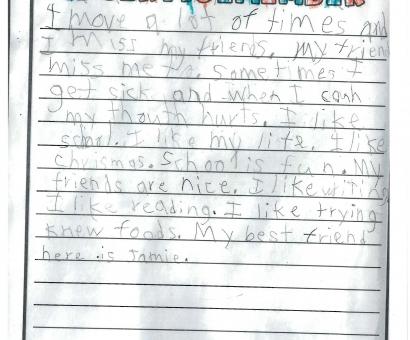 I move a lot of times and
I miss my friends. My frien
miss me to. Sometimes I
get sick and when I
my thouth hurts. I like
school. I like my life. I like
chrismos. School is fun. My
friends are nice. I like writing
I like reading. I like trying
knew foods. My best friend
here is Jamie.